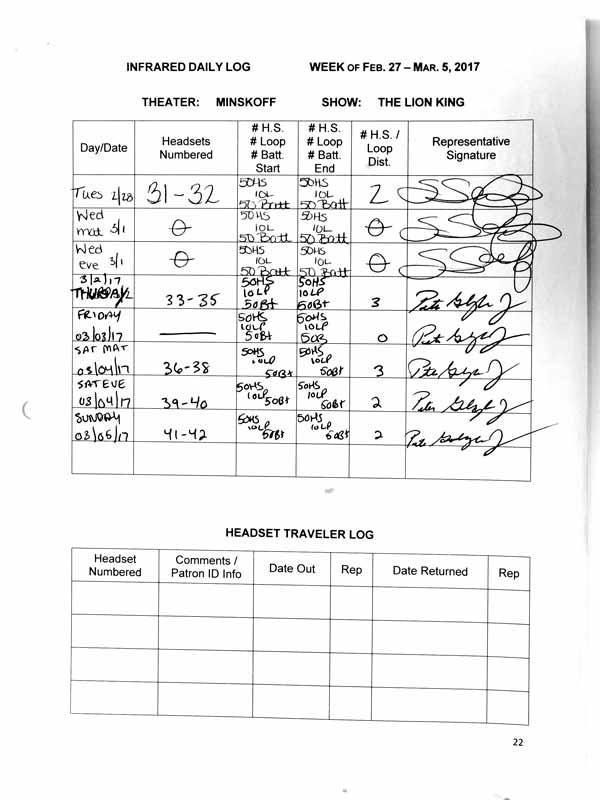 INFRARED DAILY LOG WEEK OF FEB. 27 – MAR. 5, 2017
THEATER: MINSKOFF SHOW: THE LION KING
Day/Date Headsets Numbered # H.S. # Loop # Batt. Start # H.S. # Loop # Batt. End # H.S. / Loop Dist. Representative Signature
Tues 2/28 31-32 50HS 10L 50 Batt 50HS 10L 50 Batt 2
Wed mat 3/1 0 50HS 10L 50 Batt 50HS 10L 50 Batt 0
Wed eve 3/1 0 50HS 10L 50 Batt 50HS 10L 50 Batt 0
3/2/17 THURSDAY 33-35 50HS 10LP 50Bt 50HS 10LP 50Bt 3
FRIDAY 03/03/17 — 50HS 10LP 50Bt 50HS 10LP 50B 0
SAT MAT 03/04/17 36-38 50HS 10LP 50Bt 50HS 10LP 50Bt 3
SAT EVE 03/04/17 39-40 50HS 10LP 50Bt 50HS 10LP 50Bt 2
SUNDAY 03/05/17 41-42 50HS 10LP 50Bt 50HS 10LP 50Bt 2
HEADSET TRAVELER LOG
Headset Numbered Comments / Patron ID Info Date Out Rep Date Returned Rep
22